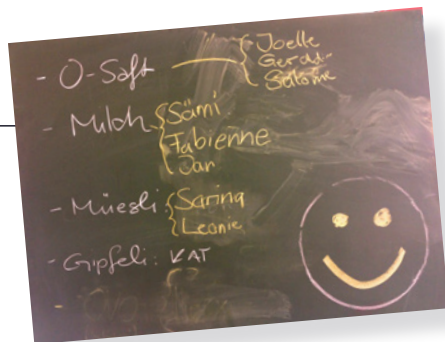 - O-Saft { Joelle
Gerda-
Salome
- Milch { Sämi
Fabienne
Jan
- Müesli: { Sarina
Leonie
- Gipfeli: KAT
-